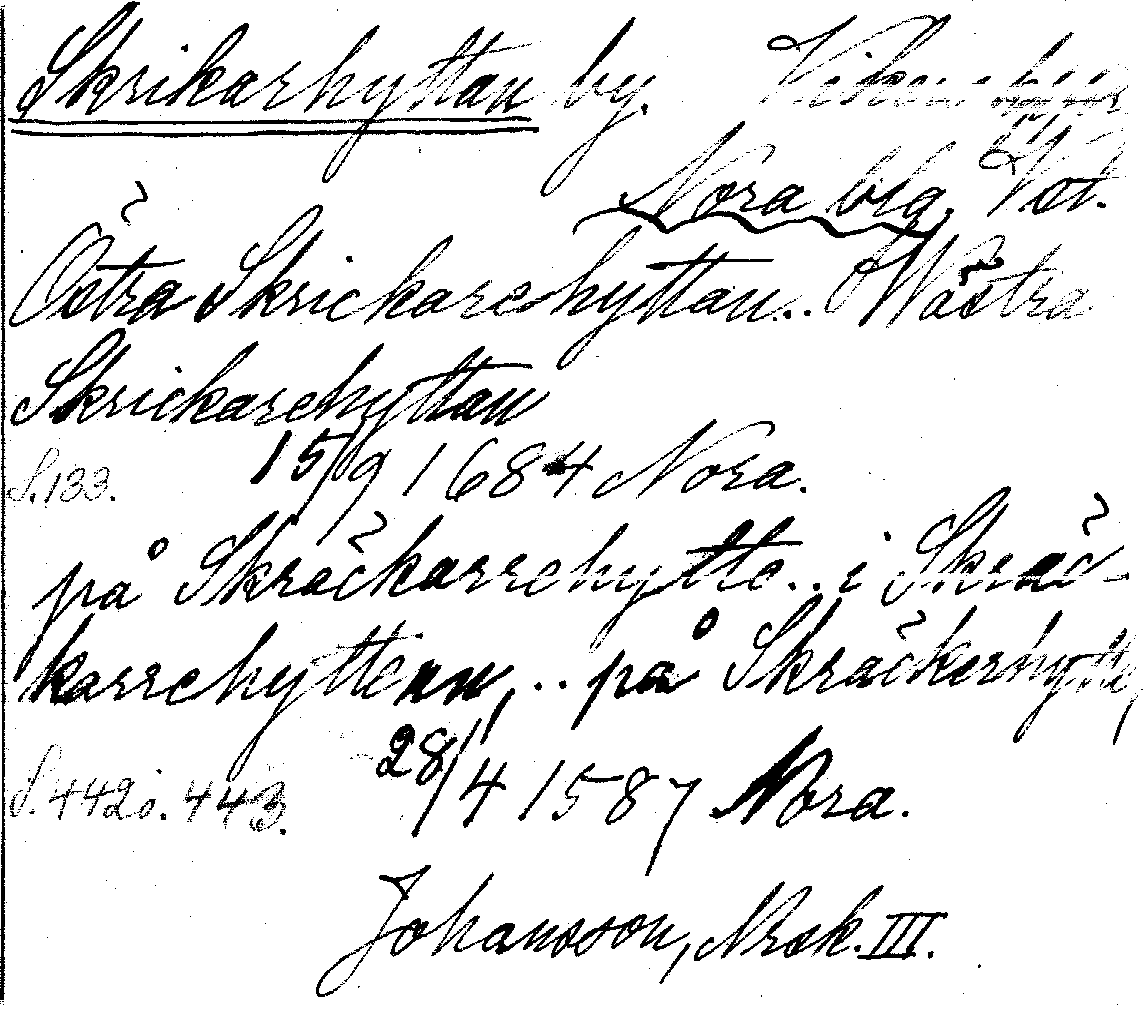 Skrikarhyttan by. Vikers
Nora blg. Vst.
Östra Skrickarehyttan.. Wästra
Skrickarehyttan
S. 133. 15/9 1684 Nora.
på Skräckarrehytte.. i Skräc-
karrehyttenn,.. på Skräckerhytte,
S. 442 o. 443. 28/4 1587 Nora.
Johansson, Nrsk. III.